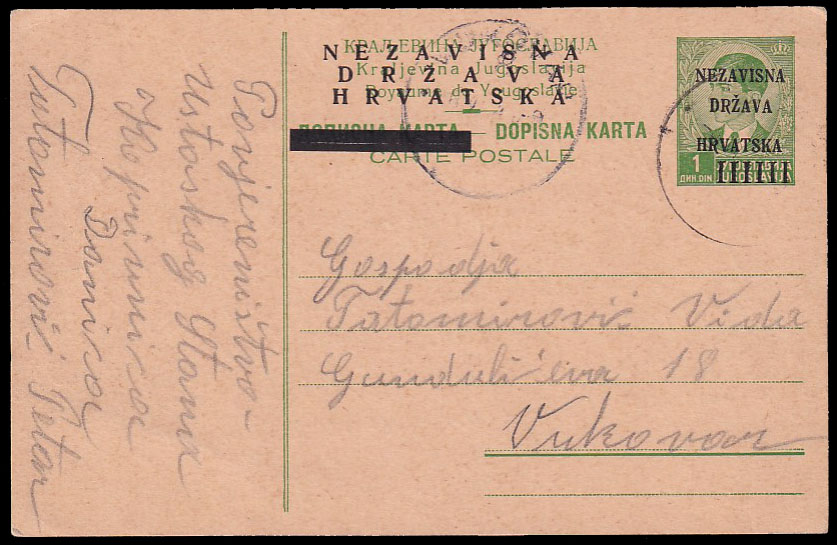 КРАЉЕВИНА ЈУГОСЛАВИЈА
NEZAVISNA
Kraljevina Jugoslavija
DRŽAVA
Royaume de Yougoslavie
HRVATSKA
ДОПИСНА КАРТА — DOPISNA KARTA
CARTE POSTALE
NEZAVISNA
DRŽAVA
HRVATSKA
1
ДИН. DIN
Gospodja
Tatomirović Vida
Gundulićeva 18
Vukovar
Povjerenistvo
Ustaskog Stana
Koprivnica
Danica
Tatomirović Petar